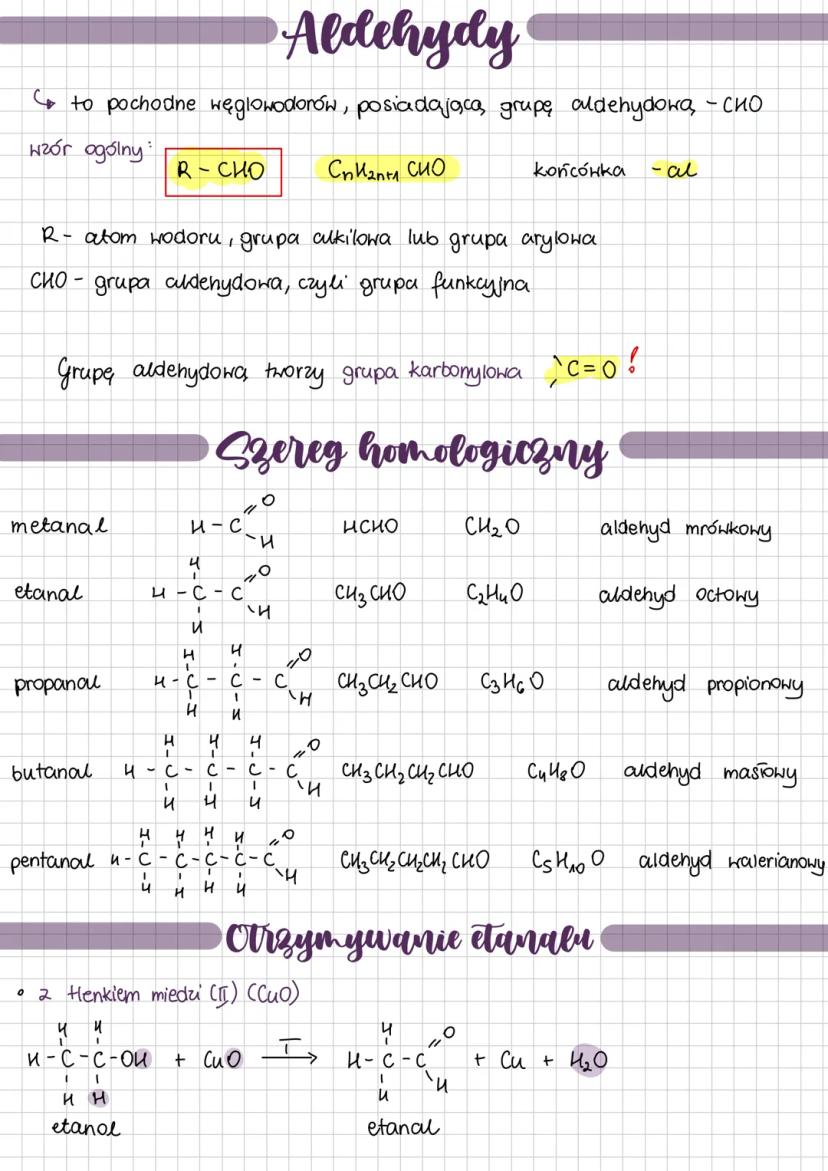 Aldehydy
↳ to pochodne węglowodorów, posiadającą grupę aldehydową -CHO
wzór ogólny:
R - CHO CnH2n+1 CHO końcówka -al
R - atom wodoru, grupa alkilowa lub grupa arylowa
CHO - grupa aldehydowa, czyli grupa funkcyjna
Grupę aldehydową tworzy grupa karbonylowa C=O !
Szereg homologiczny
metanal H-C=O H HCHO CH2O aldehyd mrówkowy
H
etanal H-C-C=O H CH3CHO C2H4O aldehyd octowy
H
H H
propanal H-C-C-C=O H CH3CH2CHO C3H6O aldehyd propionowy
H H
H H H
butanal H-C-C-C-C=O H CH3CH2CH2CHO C4H8O aldehyd masłowy
H H H
H H H H
pentanal H-C-C-C-C-C=O H CH3CH2CH2CH2CHO C5H10O aldehyd walerianowy
H H H H
Otrzymywanie etanalu
• z tlenkiem miedzi (II) (CuO)
H H H
H-C-C-OH + CuO T→ H-C-C=O H + Cu + H2O
H H H
etanol etanal